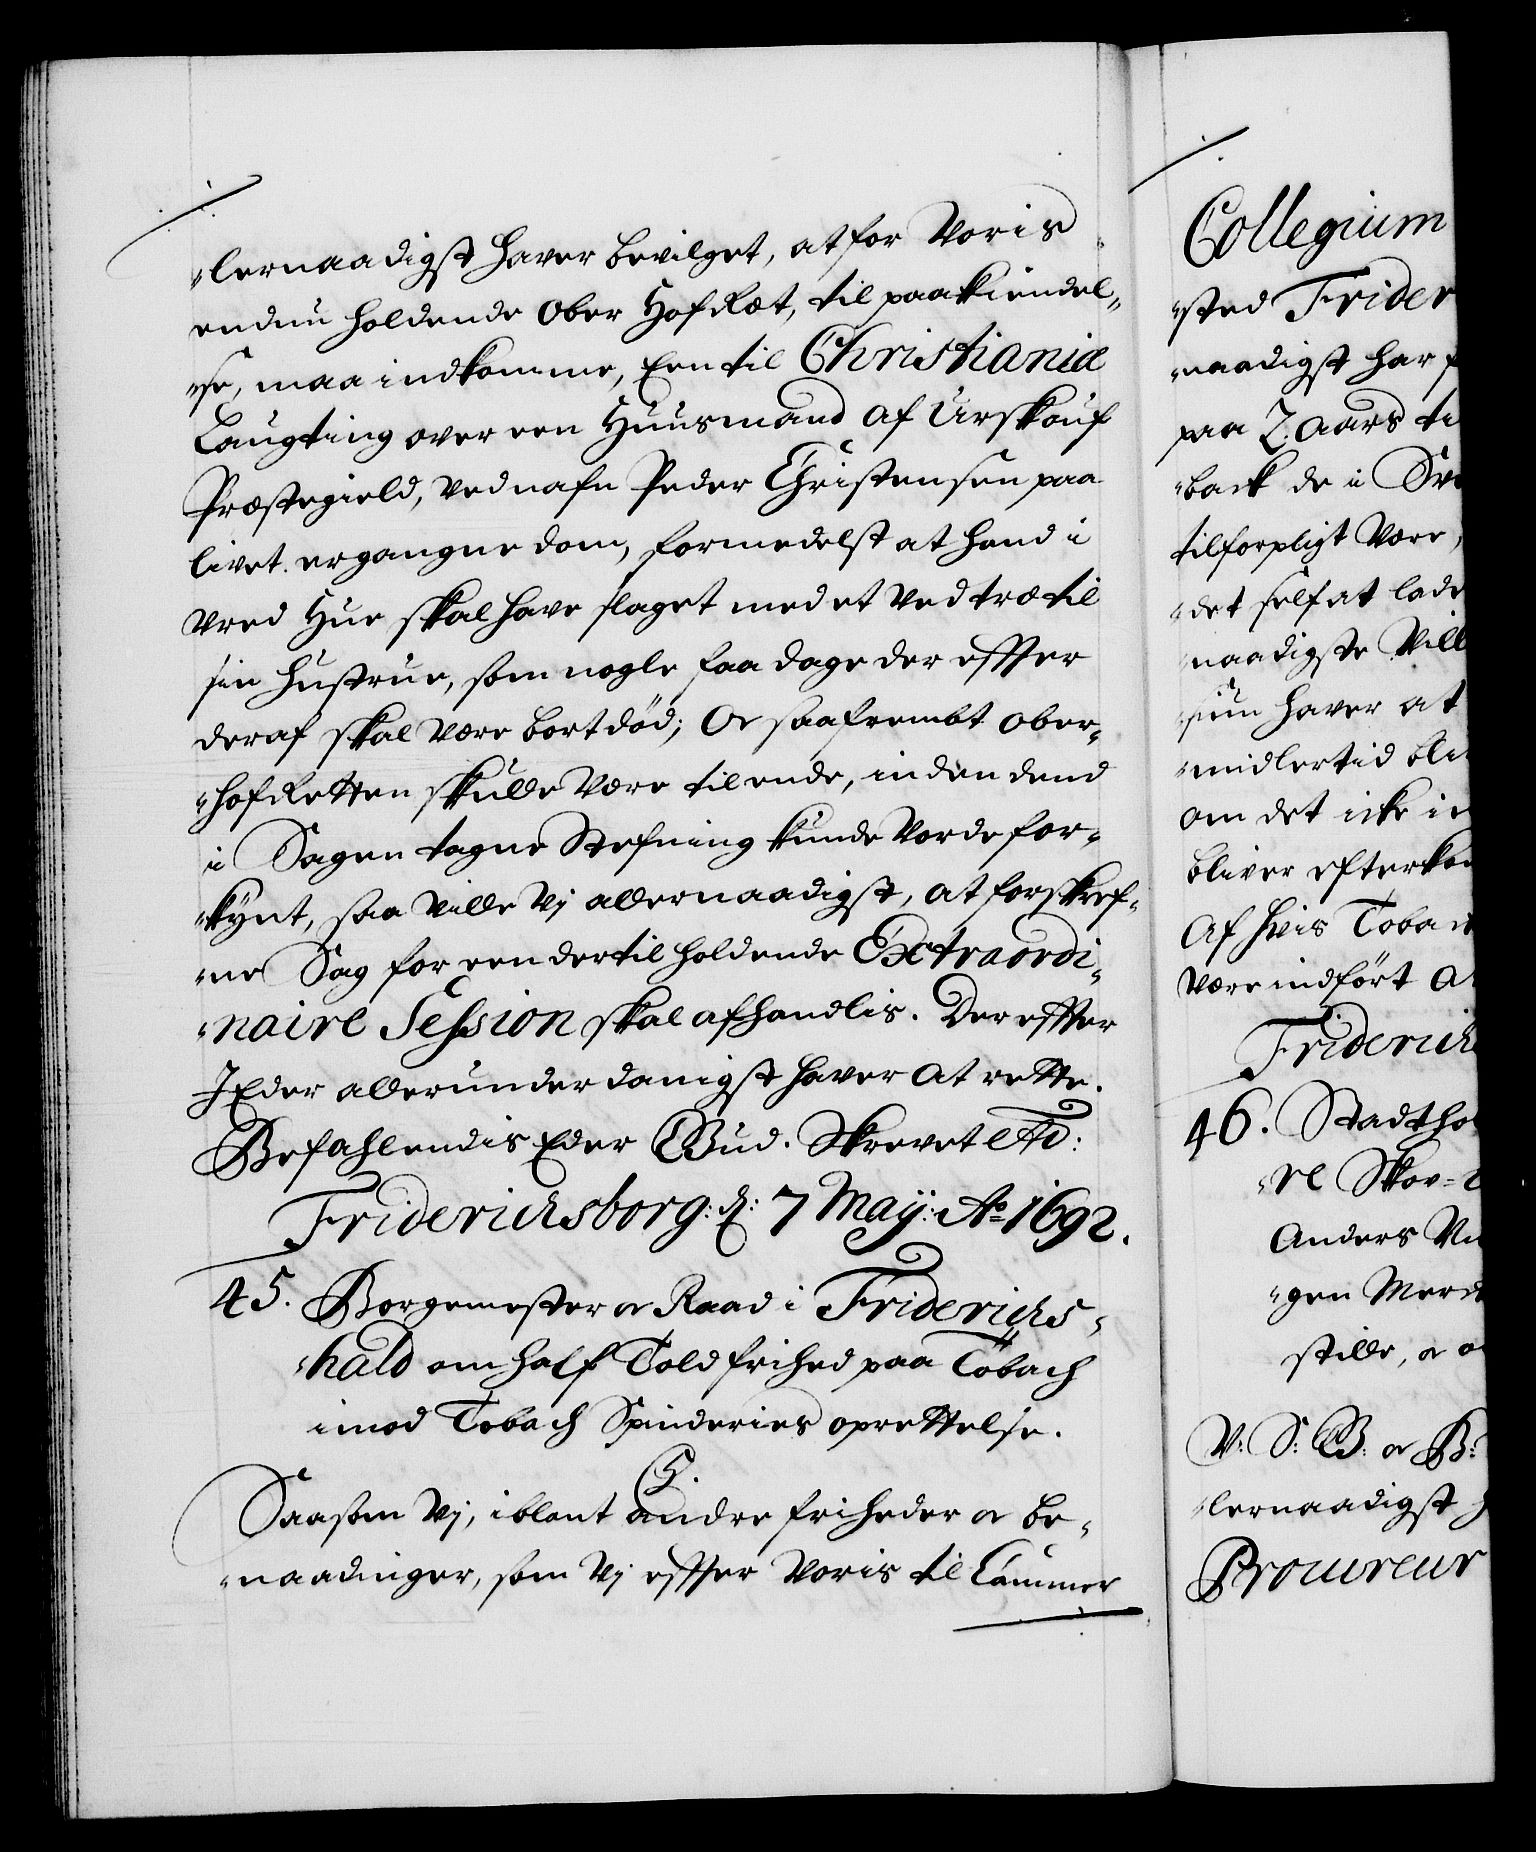 "lernaadigst haver bevilget, at for Voris
endnu holdende Ober Hof Ræt, til paakiendel„
„se, maa indkomme, Een til Christiania
Laugting over een Huusmand af Urskouf
Præstegield, ved nafn Peder Christensen paa
livet ergangne dom, formedelst at hand i
vred Hue skal have slaget med et Vedtræ til
sin Hustrue, som nogle faa dage der effter
deraf skal være bortdöd; Oc saafrembt Ober„
„hof Retten skulle være til ende, inden dend
i Sagen tagne Stefning kunde vorde for„
„kynt, saa Ville Vj allernaadigst, at forskref„
„ne Sag for een dertil holdende Extraordi„
„naire Session skal afhandlis. Der effter
J Eder allerunderdanigst haver at rette.
Befahlendis Eder Gud. Skrevet etc:
Friderichsborg: d: 7 Maÿ: Ao 1692.
45. Borgemester oc Raad i Friderichs„
„hald om half Told frihed paa Tobach
imod Tobach Spinderies oprettelse.
C5.
Saasom Vj, iblant andre friheder oc be„
„naadinger, som Vj effter Voris til Cammer
Collegium
„sted Frider
„naadigst har f
paa 2. Aars ti
„back de i
tilforpligt Være,
„det self at lade
„naadigste Vill
haver at
„midlertid bli
om det icke i
bliver efterkom
Af hvis Toba
Være indfört A
Friderichs
46. Stadthol
„re Skov=
Anders
„gen
stille, oc
V: S: G: oc B:
„lernaadigst h
Procureur